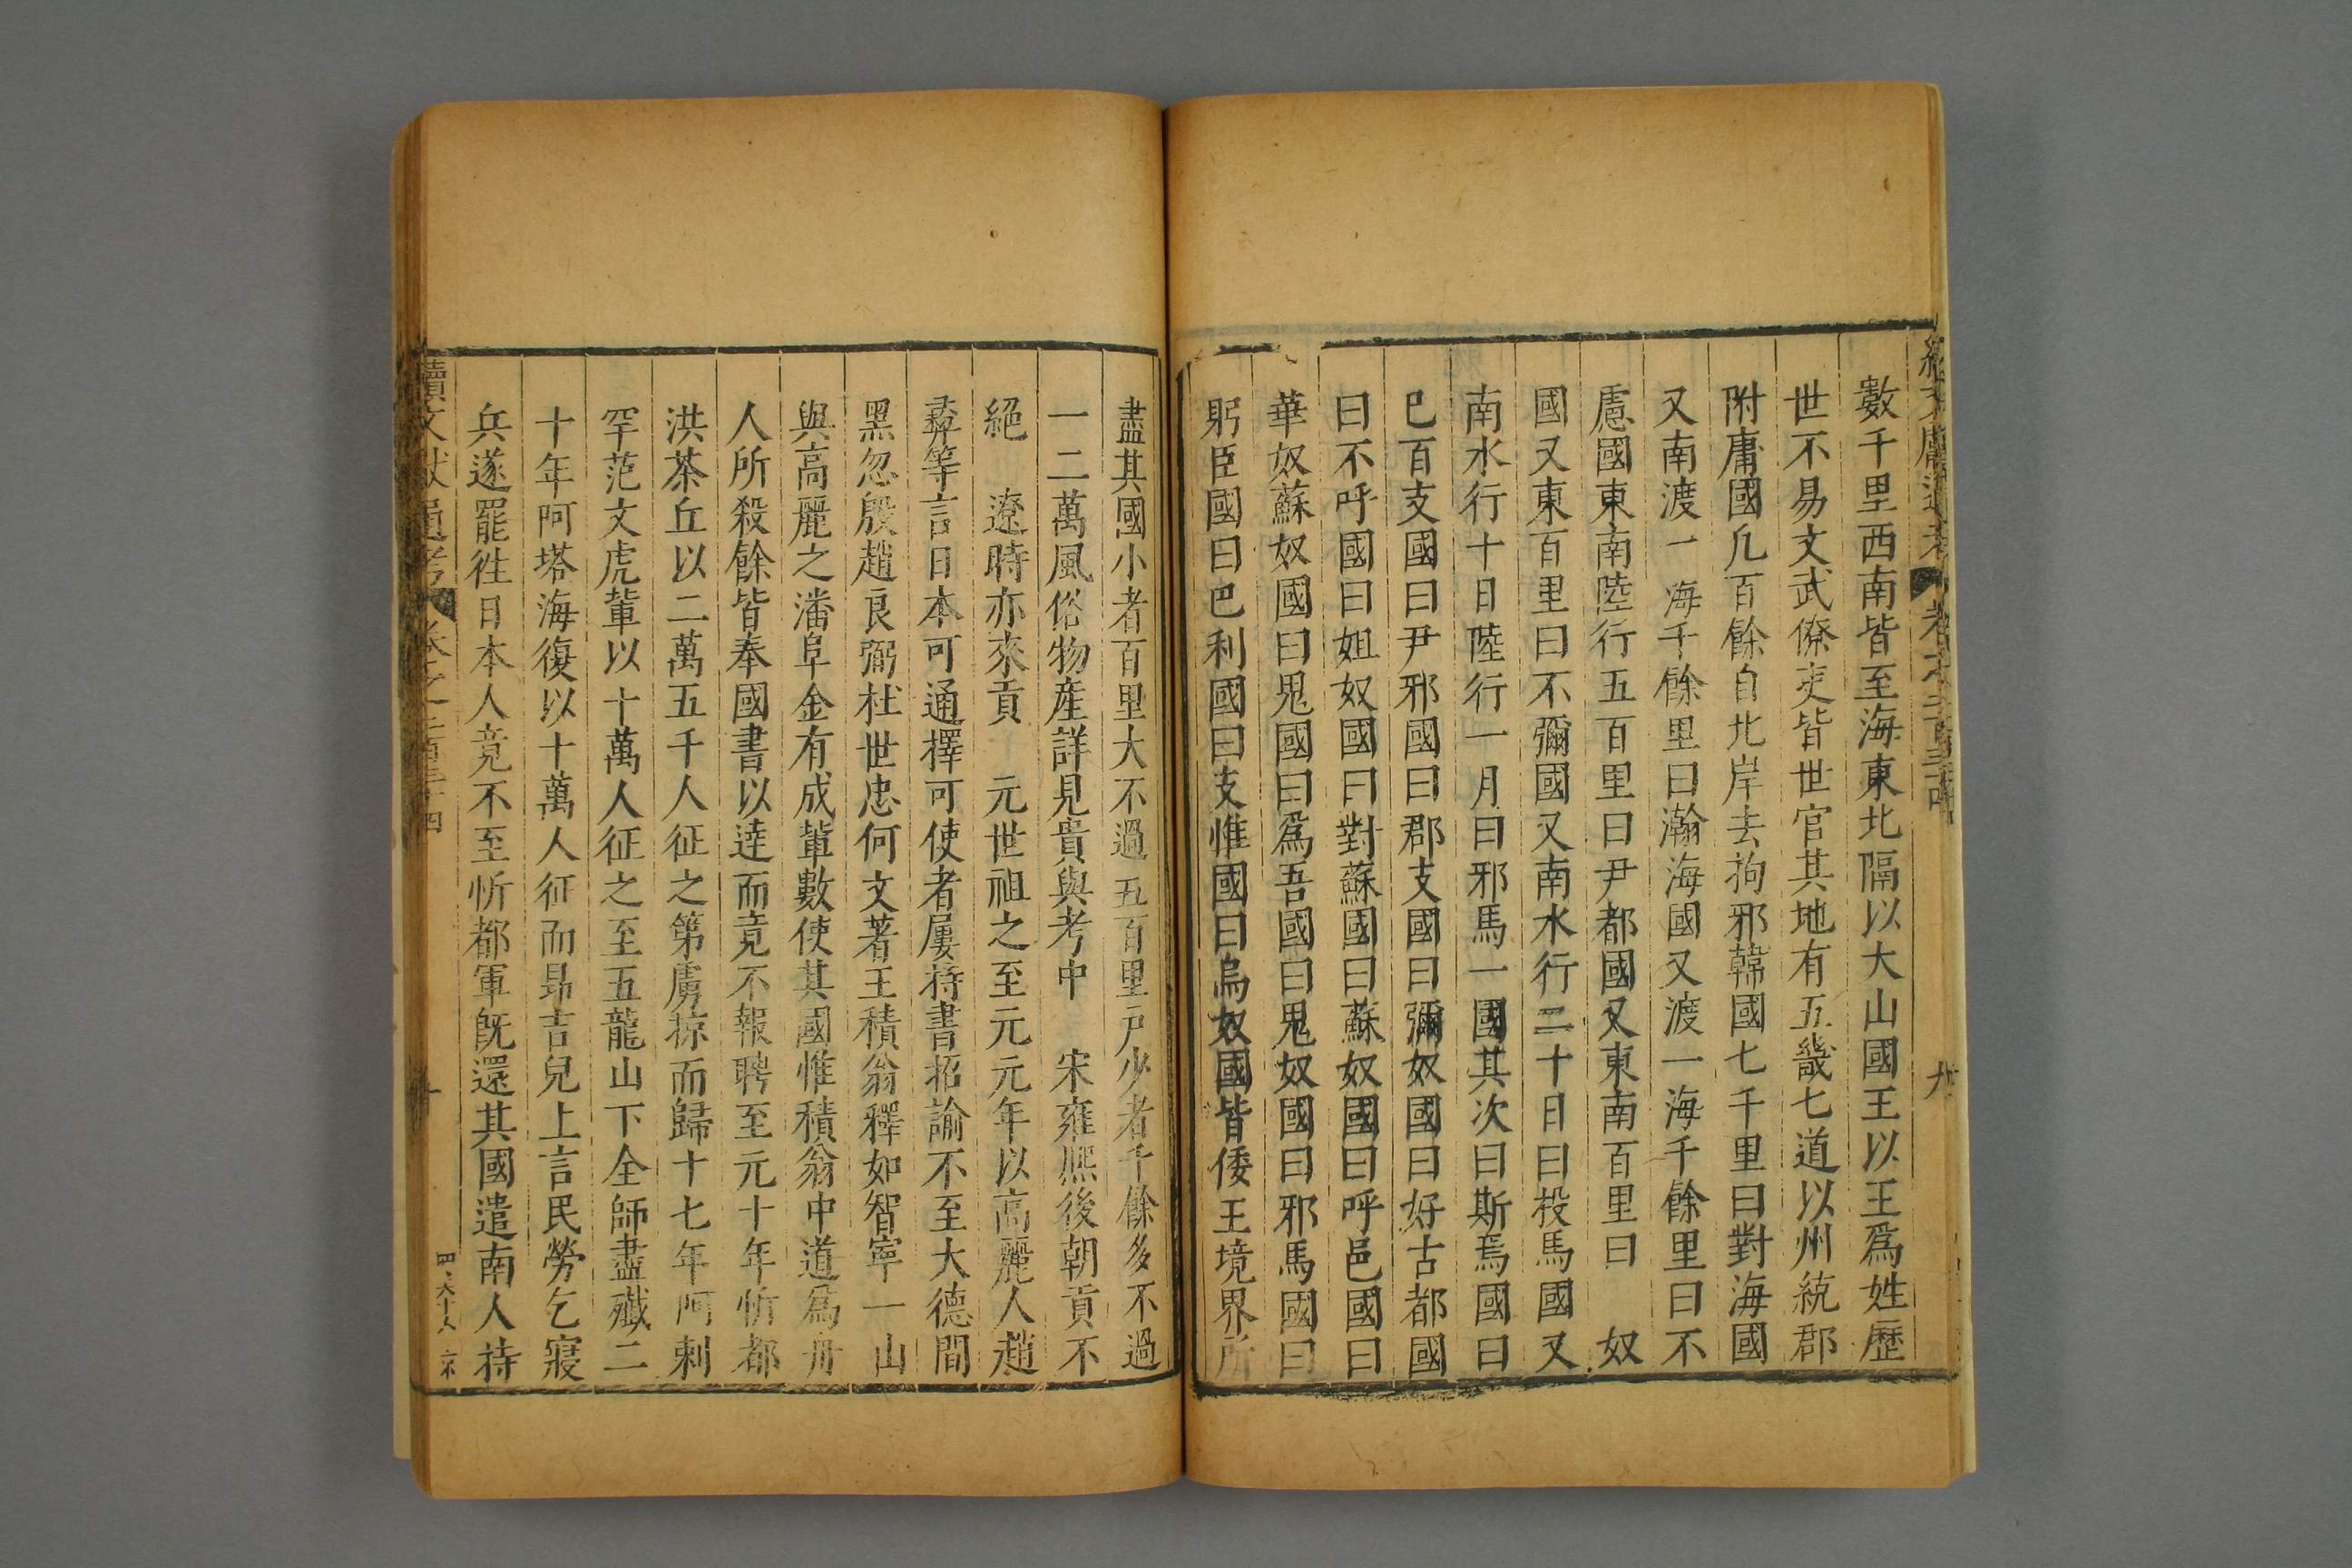 數千里西南皆至海東北隔以大山國王以王爲姓歷
世不易文武僚吏皆世官其地有五畿七道以州統郡
附庸國凡百餘自北岸去拘邪韓國七千里曰對海國
又南渡一海千餘里曰瀚海國又渡一海千餘里曰不
慮國東南陸行五百里曰尹都國又東南百里曰 奴
國又東百里曰不彌國又南水行二十日曰投馬國又
南水行十日陸行一月曰邪馬一國其次曰斯焉國曰
巳百支國曰尹邪國曰郡支國曰彌奴國曰好古都國
曰不呼國曰姐奴國曰對蘇國曰蘇奴國曰呼邑國曰
華奴蘇奴國曰鬼國曰爲吾國曰鬼奴國曰邪馬國曰
躬臣國曰巴利國曰支惟國曰烏奴國皆倭王境界所
盡其國小者百里大不過五百里戸少者千餘多不過
一二萬風俗物産詳見貴與考中 宋雍熙後朝貢不
絕 遼時亦來貢 元世祖之至元元年以高麗人趙
彛等言日本可通擇可使者屢持書招諭不至大德間
黑忽殷趙良弼杜世忠何文著王積翁釋如智寧一山
與高麗之潘阜金有成輩數使其國惟積翁中道爲舟
人所殺餘皆奉國書以達而竟不報聘至元十年忻都
洪茶丘以二萬五千人征之第虜掠而歸十七年阿剌
罕范文虎輩以十萬人征之至五龍山下全師盡殲二
十年阿塔海復以十萬人征而昂吉兒上言民勞乞寢
兵遂罷徃日本人竟不至忻都軍既還其國遣南人持
續文獻通考 卷之二百三十四